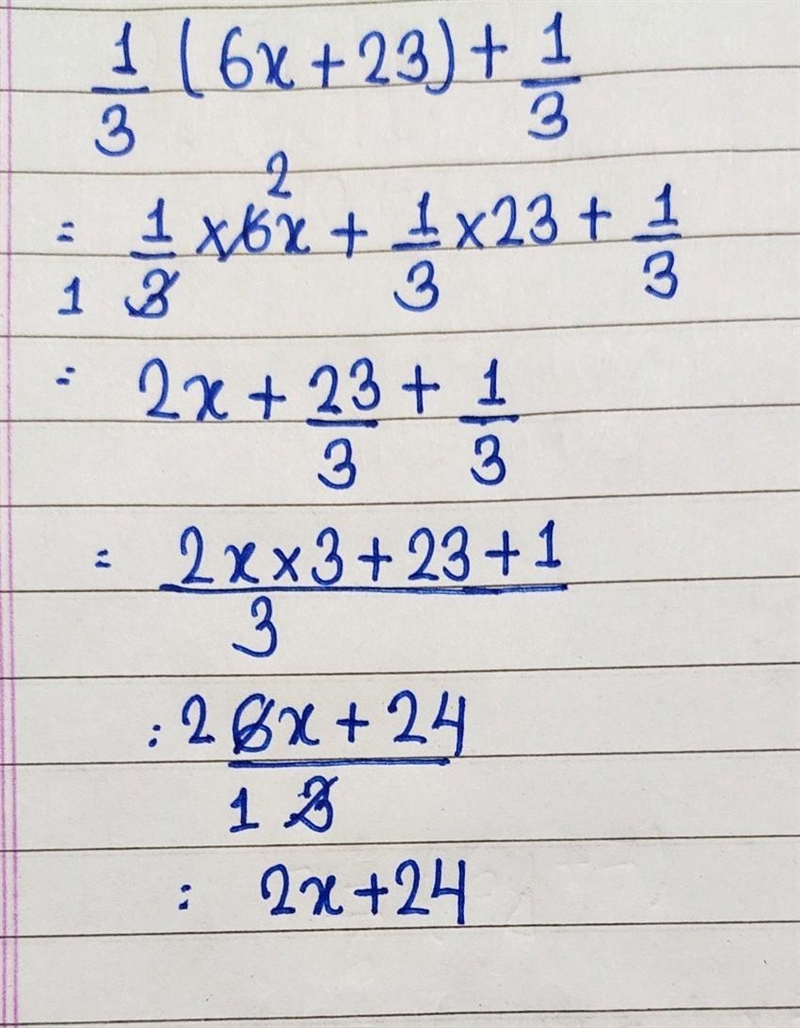 1/3 (6x + 23) + 1/3
= 1/3 × 6x + 1/3 × 23 + 1/3
2
1
= 2x + 23/3 + 1/3
= 2x × 3 + 23 + 1 / 3
: 2 6x + 24 / 1 3
: 2x + 24